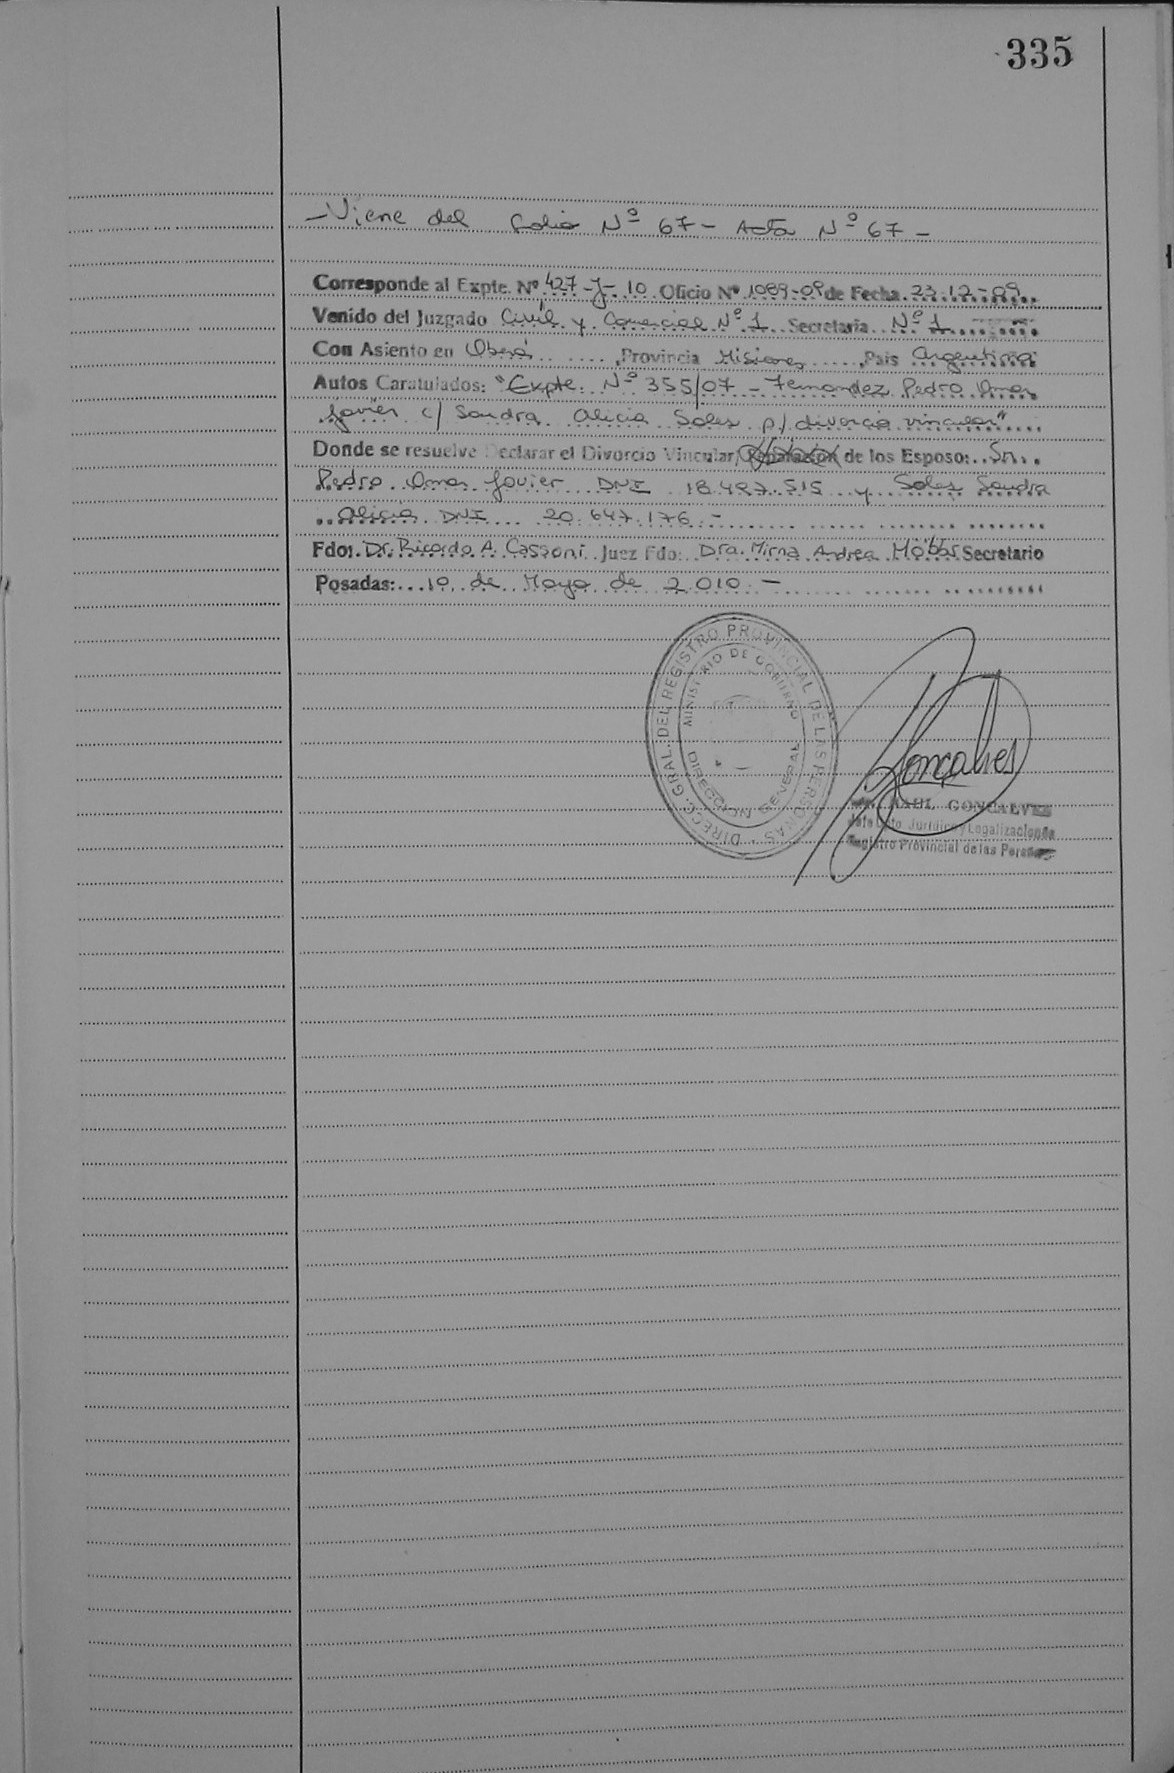 335
-Viene del Folio Nº 67- Acta Nº 67-
Corresponde al Expte. Nº 427-J-10 Oficio Nº 1089-09 de Fecha 23-12-09
Venido del Juzgado Civil y Comercial Nº 1 Secretaria Nº 1
Con Asiento en Oberá, Provincia Misiones, Pais Argentina
Autos Caratulados: "Expte. Nº 355/07 - Fernandez Pedro Omar
Javier c/ Sandra Alicia Soles p/ divorcio vincular"
Donde se resuelve Declarar el Divorcio Vincular, de los Esposo: Sn.
Pedro Omar Javier DNI 18.497.515 y Soles Sandra
Alicia DNI 20.647.176 -
Fdo: Dr. Ricardo A. Cassoni Juez Fdo: Dra. Mirna Andrea Secretario
Posadas: 10 de Mayo de 2.010 -
DIRECC. GRAL. DEL REGISTRO PROVINCIAL DE LAS PERSONAS
MINISTERIO DE GOBIERNO
DIRECCION GENERAL
Gonçalves
RAUL GONCALVES
Jefe Dpto. Juridico y Legalizaciones
Registro Provincial de las Personas